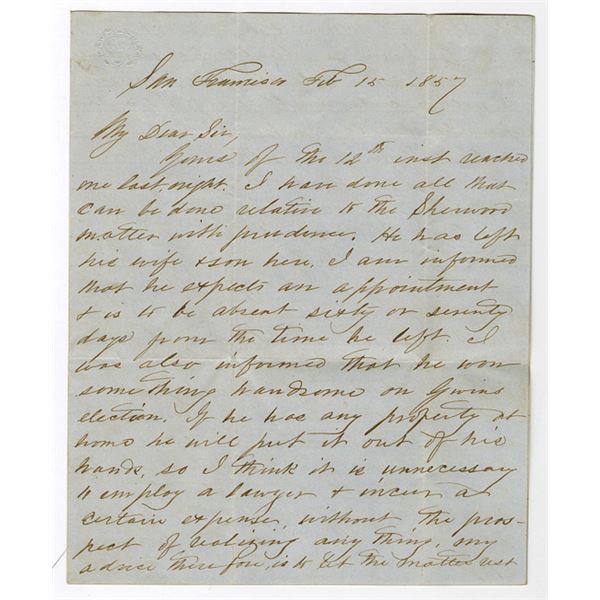 San Francisco Feb 15 1857
My Dear Sir,
Yours of the 12th inst reached
me last night. I have done all that
can be done relative to the Sherwood
matter with prudence. He has left
his wife & son here. I am informed
that he expects an appointment
& is to be absent sixty or seventy
days from the time he left. I
was also informed that he won
something handsome on Gwins
election. If he has any property at
home he will put it out of his
hands, so I think it is unnecessary
to employ a lawyer & incur a
certain expense, without the pros-
pect of realizing any thing, my
advice therefore, is to let the matter rest